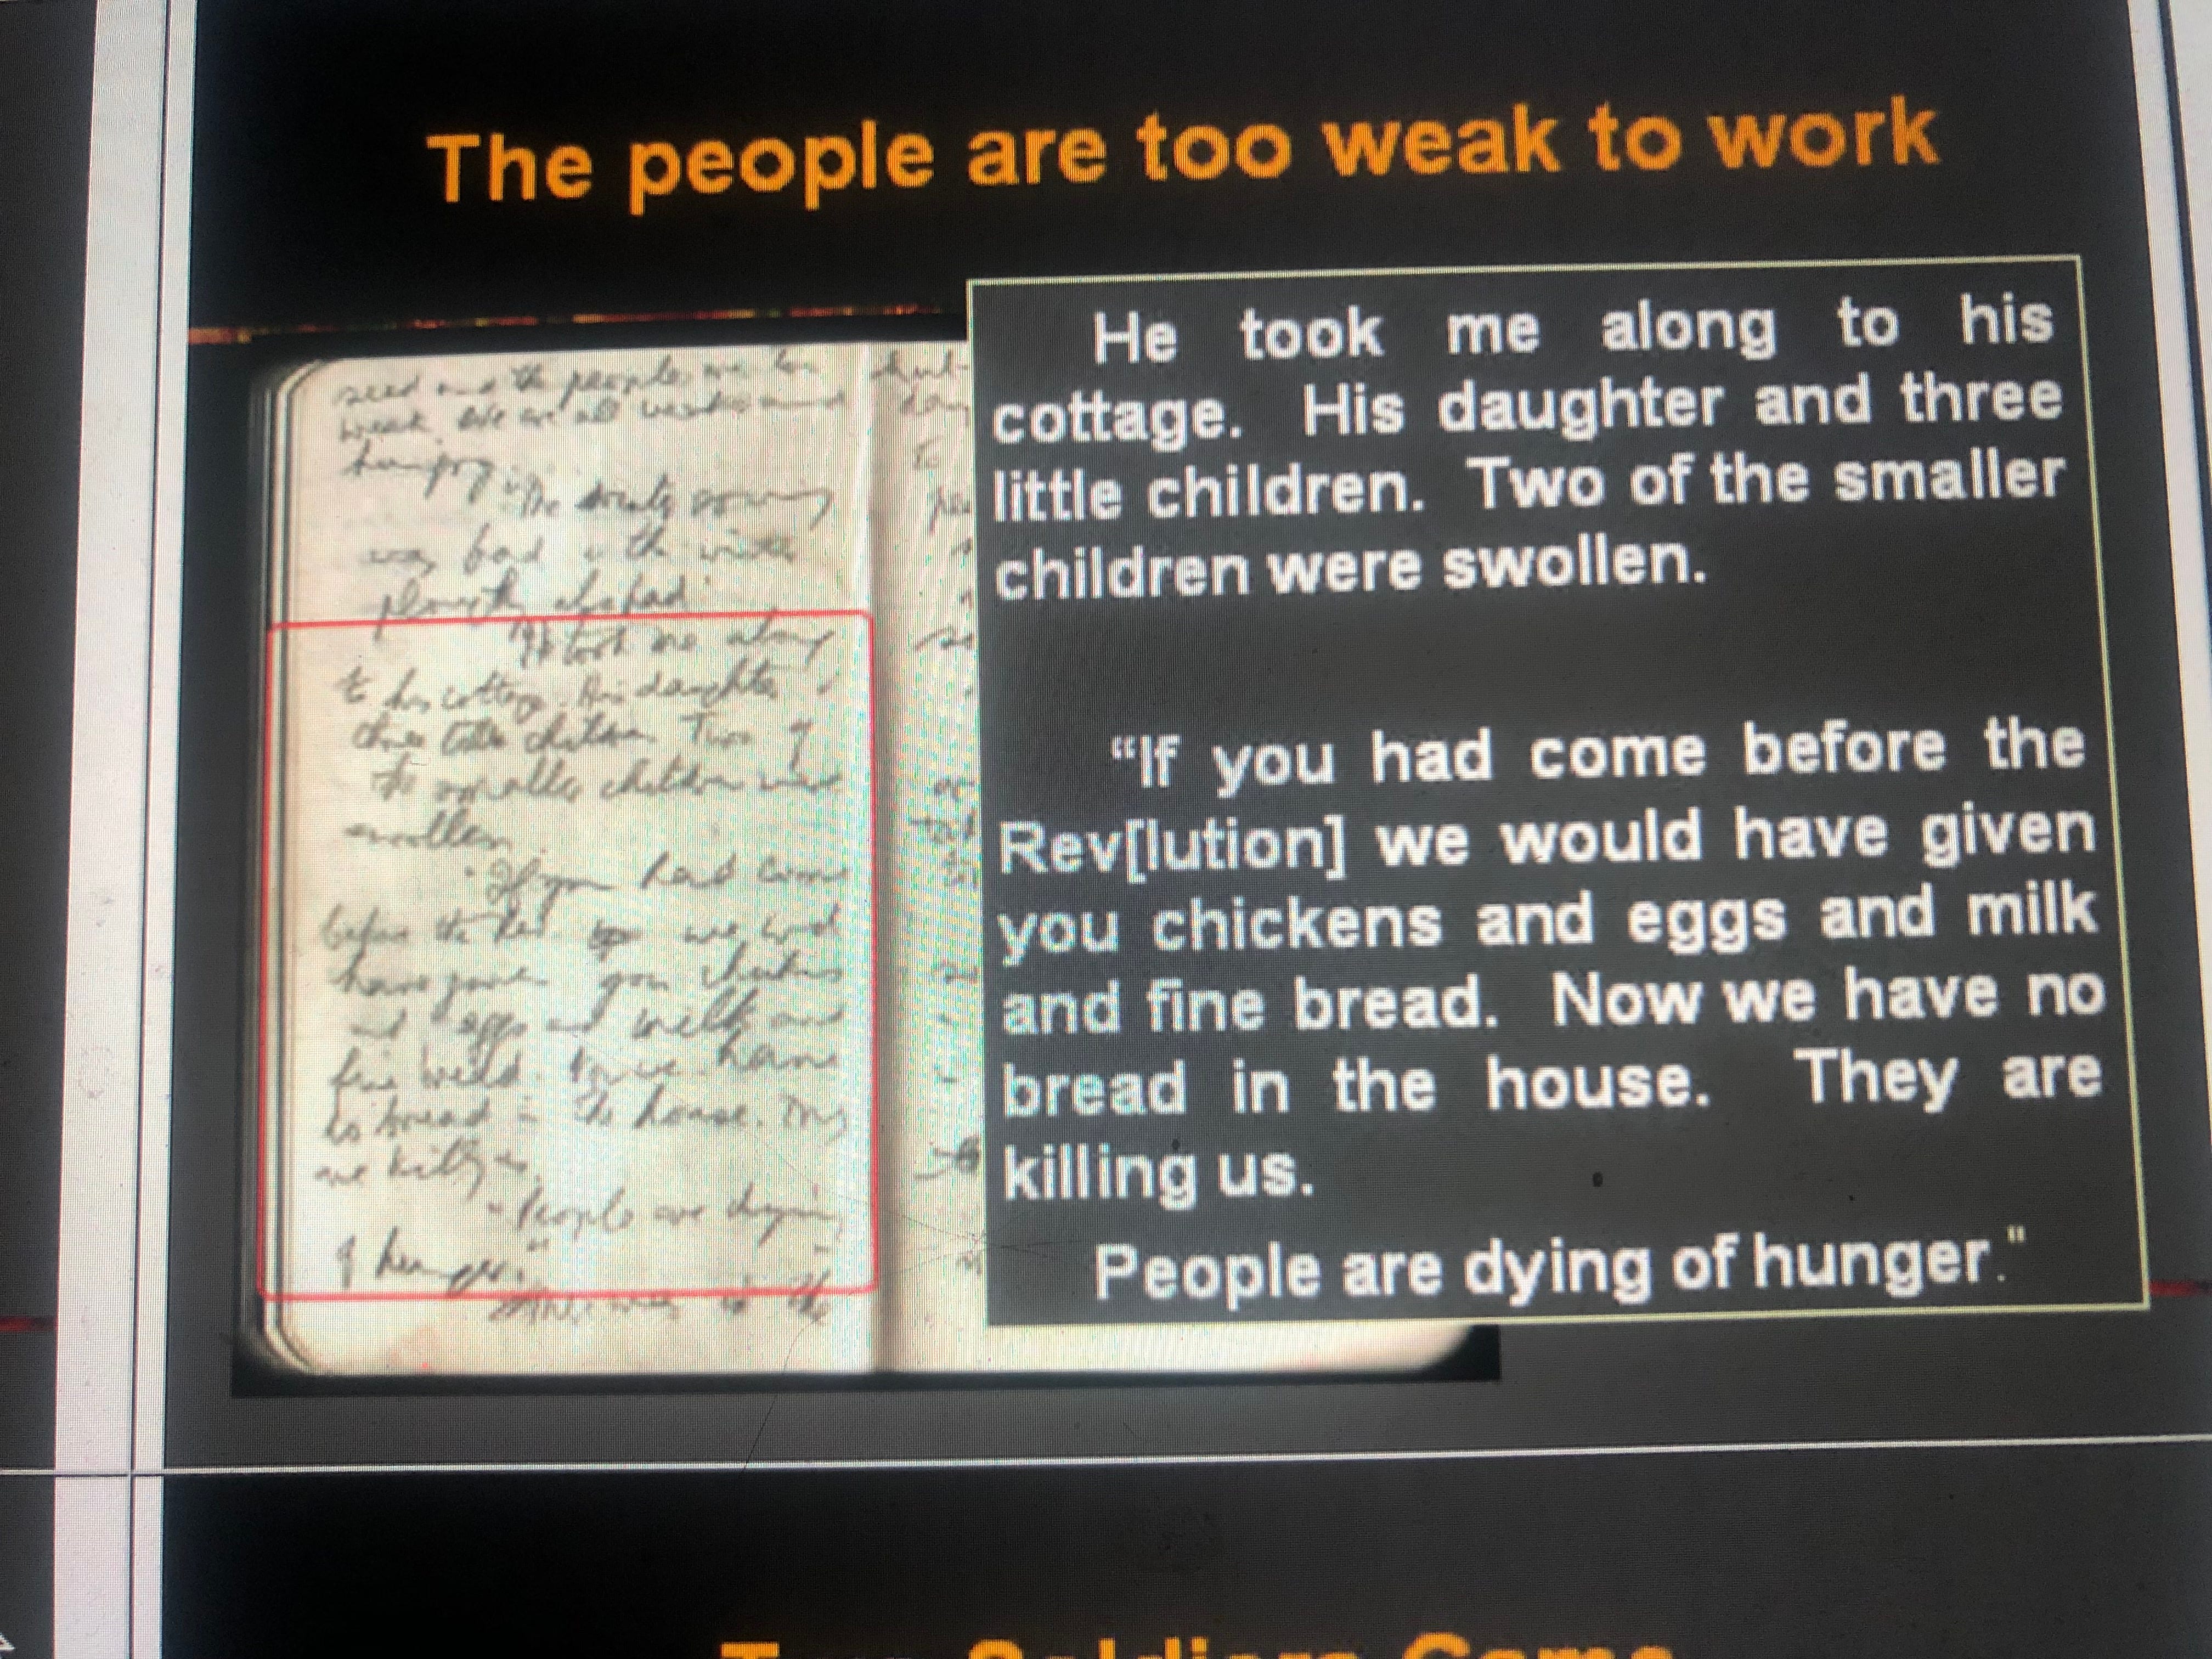 The people are too weak to work
seed and the people are too
weak. We are all weak and
hungry.
The winter sowing
was bad & the winter
ploughing also bad.
He took me along
to his cottage. His daughter &
three little children. Two of
the smaller children were
swollen.
"If you had come
before the Rev. we wod
have given you chickens
and eggs and milk and
fine bread. Now we have
no bread in the house. They
are killing us.
"People are dying
of hunger."
in the
He took me along to his
cottage. His daughter and three
little children. Two of the smaller
children were swollen.
“If you had come before the
Rev[lution] we would have given
you chickens and eggs and milk
and fine bread. Now we have no
bread in the house. They are
killing us.
People are dying of hunger."